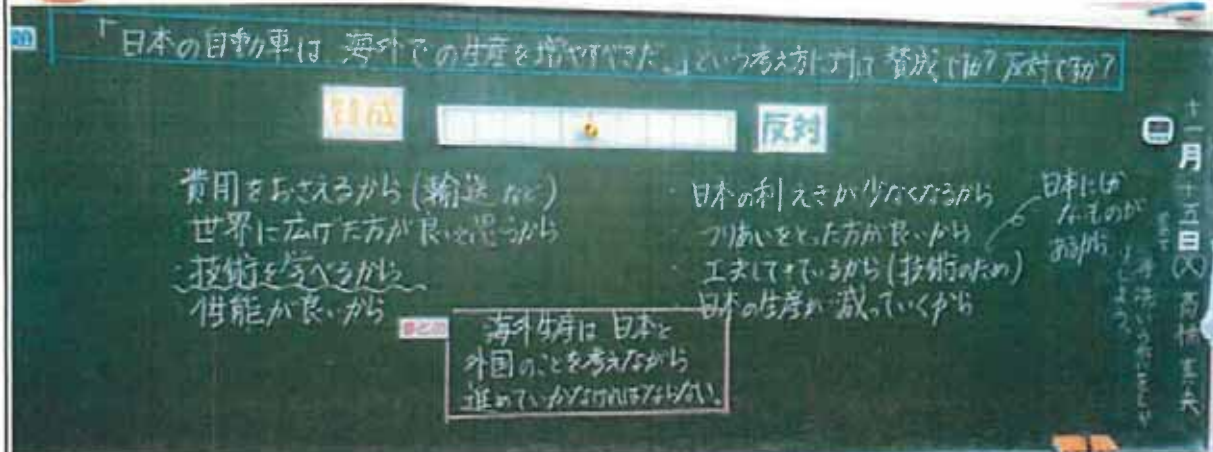 「日本の自動車は、海外での生産を増やすべきだ。」という考え方に対して賛成ですか?反対ですか?
賛成
反対
費用をおさえるから(輸送など)
世界に広げた方が良いと思うから
・技術を学べるから
性能が良いから
・日本の利えきが少なくなるから
・つりあいをとった方が良いから
・工夫してきているから(技術のため)
・日本の生産が減っていくから
日本にし
ものが
あるから
まとめ
海外生産は日本と
外国のことを考えながら
進めていかなければならない。
十一月十五日(火)
高橋